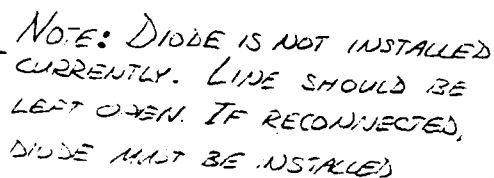 NOTE: DIODE IS NOT INSTALLED
CURRENTLY. LINE SHOULD BE
LEFT OPEN. IF RECONNECTED,
DIODE MUST BE INSTALLED